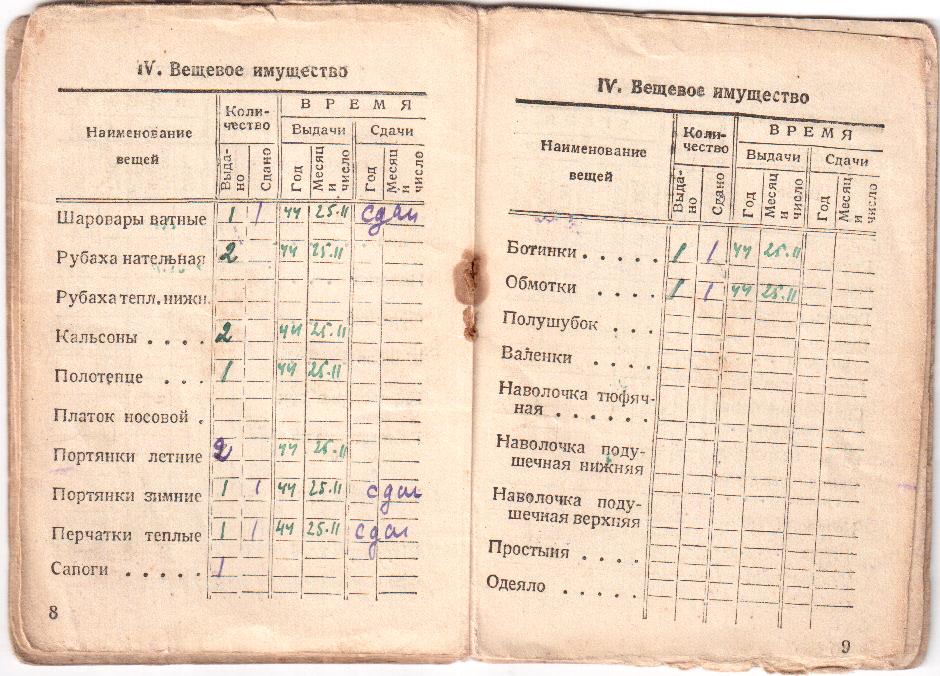 IV. Вещевое имущество
Наименование вещей
Коли-
чество
ВРЕМЯ
Выдачи
Сдачи
Выда-
но
Сдано
Год
Месяц
и
число
Год
Месяц
и
число
Шаровары ватные 1 1 44 25.11 сдал
Рубаха нательная 2 44 25.11
Рубаха тепл. нижн.
Кальсоны . . . . 2 44 25.11
Полотенце . . . 1 44 25.11
Платок носовой .
Портянки летние 2 44 25.11
Портянки зимние 1 1 44 25.11 сдал
Перчатки теплые 1 1 44 25.11 сдал
Сапоги . . . . . 1
8
IV. Вещевое имущество
Наименование
вещей
Коли-
чество
ВРЕМЯ
Выдачи
Сдачи
Выда-
но
Сдано
Год
Месяц
и
число
Год
Месяц
и
число
Ботинки . . . . . 1 1 44 25.11
Обмотки . . . . 1 1 44 25.11
Полушубок . . .
Валенки . . . .
Наволочка тюфяч-
ная . . . . . .
Наволочка поду-
шечная нижняя
Наволочка поду-
шечная верхняя
Простыня . . . .
Одеяло . . . . .
9